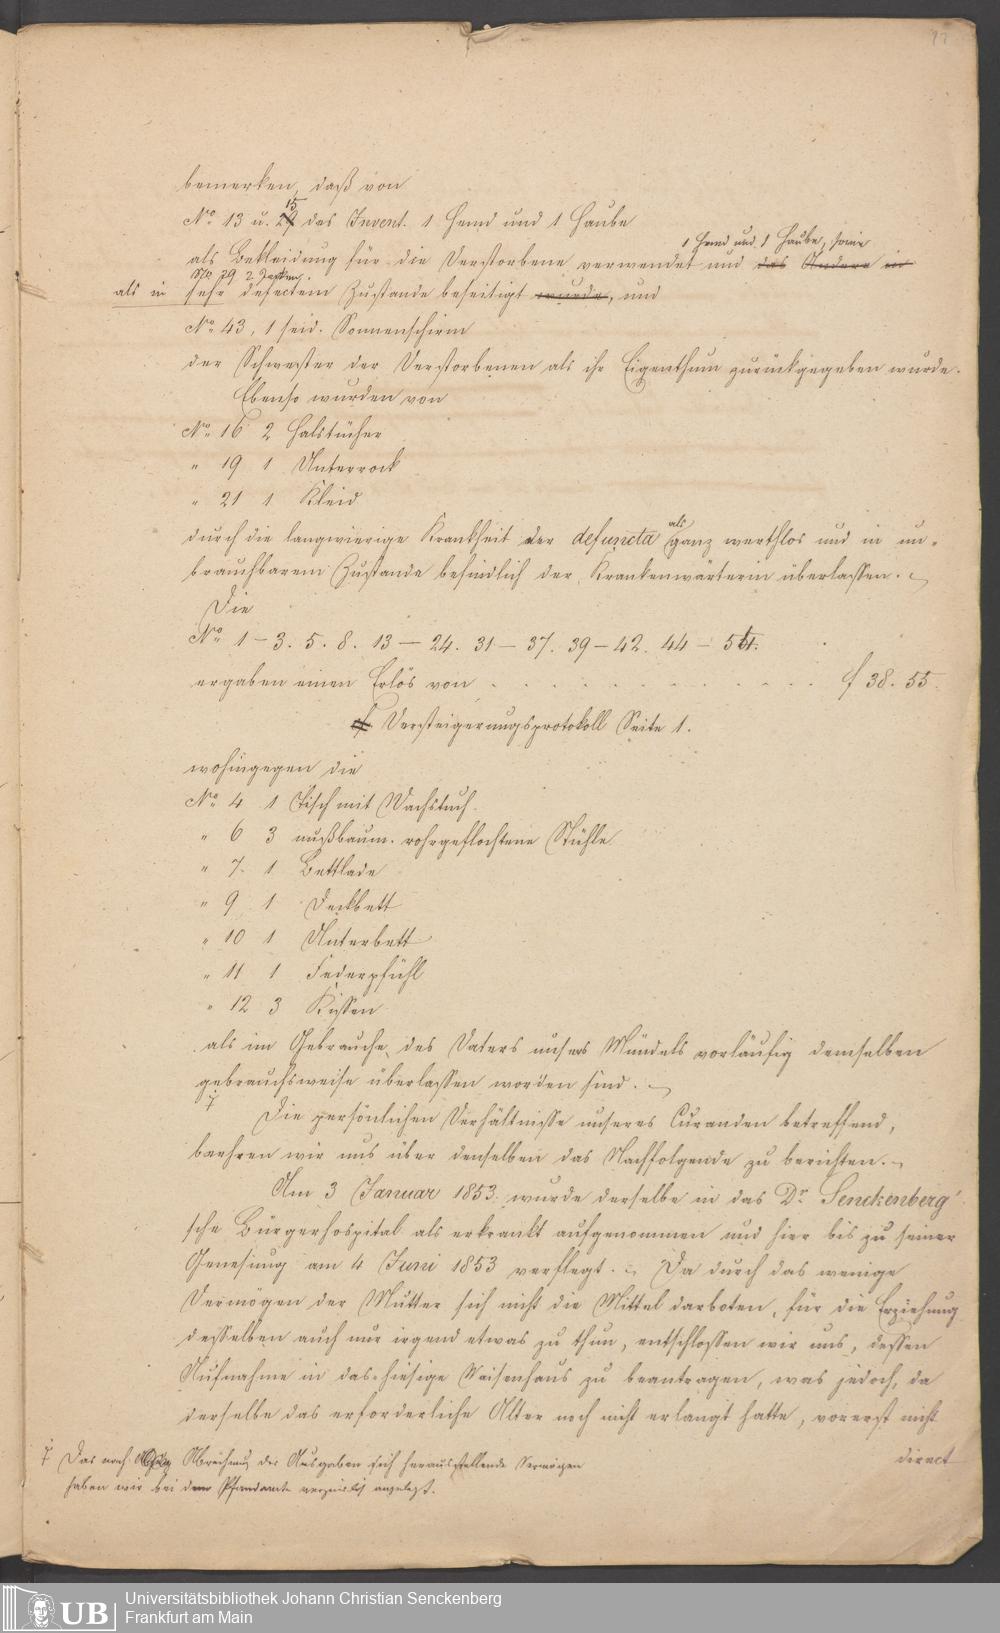 bemerken, daß von
15
No. 13 u. 29 des Invent. 1 Hemd und 1 Haube
1 Hemd und 1 Haube, sowie
als Bekleidung für die Verstorbene verwendet und das Andere in
No 29 2 Jacken.
als in sehr defectem Zustande beseitigt wurde, und
No. 43, 1 seid. Sonnenschirm
der Schwester der Verstorbenen als ihr Eigenthum zurückgegeben wurde.
Ebenso wurden von
No. 16 2 Halstücher
" 19 1 Unterrock
" 21 1 Kleid
als
durch die langwierige Krankheit der defuncta ganz werthlos und in un-
brauchbarem Zustande befindlich der Krankenwärterin überlassen.
Die
No. 1 – 3. 5. 8. 13 – 24. 31 – 37. 39 – 42. 44 –
ergaben einen Erlös von . . . . . . . . . . . f 38. 55.
Versteigerungsprotokoll Seite 1.
wohingegen die
No. 4 1 Tisch mit Wachstuch.
" 6 3 nußbaum. rohrgeflochtene Stühle
" 7. 1 Bettlade
" 9 1 Deckbett
" 10 1 Unterbett
" 11 1 Federpfühl
" 12 3 Kissen
als im Gebrauche des Vaters unsers Mündels vorläufig demselben
gebrauchsweise überlassen worden sind.
Die persönlichen Verhältnisse unseres Curanden betreffend,
beehren wir uns über denselben das Nachfolgende zu berichten.
Am 3 Januar 1853. wurde derselbe in das Dr. Senckenberg'
sche Bürgerhospital als erkrankt aufgenommen und hier bis zu seiner
Genesung am 4 Juni 1853 verpflegt. Da durch das wenige
Vermögen der Mutter sich nicht die Mittel darboten, für die Erziehung
desselben auch nur irgend etwas zu thun, entschlossen wir uns, dessen
Aufnahme in das hiesige Waisenhaus zu beantragen, was jedoch, da
derselbe das erforderliche Alter noch nicht erlangt hatte, vorerst nicht
direct
Das nach Abrechnung der Ausgaben sich herausstellende Vermögen
haben wir bei dem Pfandamte verzinslich angelegt.
UB
Universitätsbibliothek Johann Christian Senckenberg
Frankfurt am Main